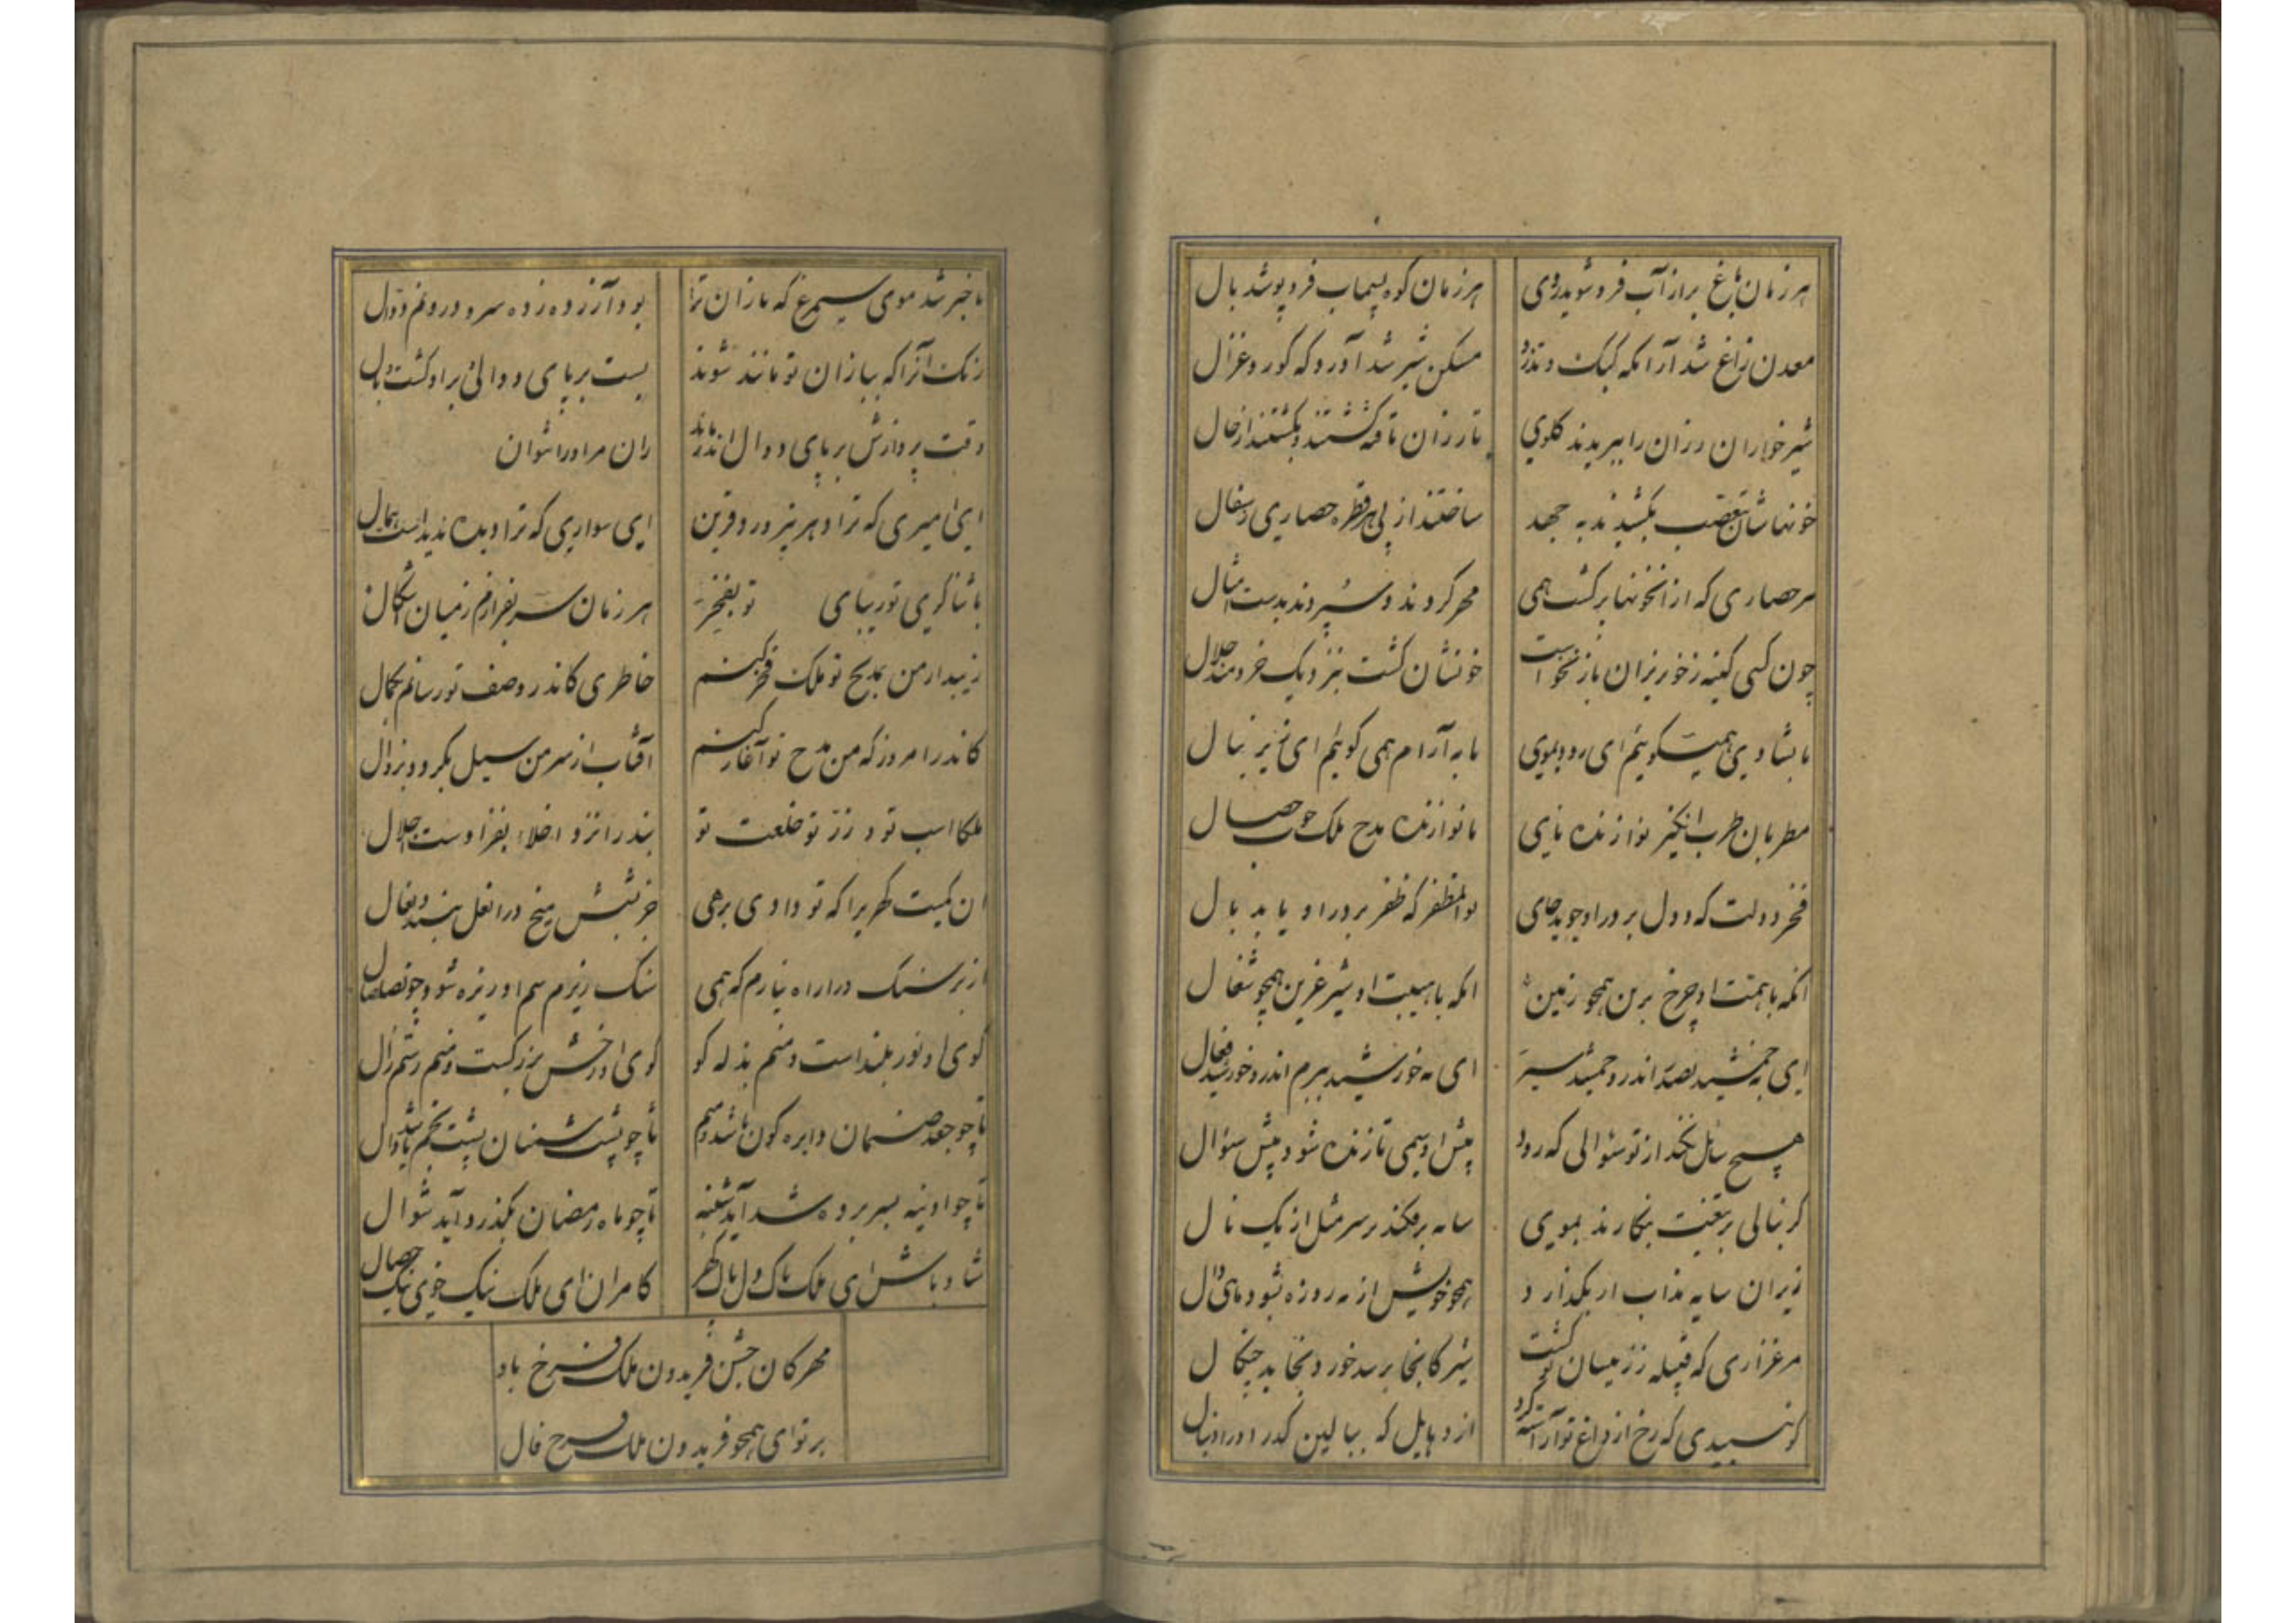 هر زمان باغ براز آب فرو شوید روی
هر زمان کوه بسیماب فرو پوشد بال
معدن زاغ شد آرامکه کبک و تذرو
مسکن شیر شد آوردکه کور و غزال
شیرخواران رزان را ببریدند کلوی
تا رزان تافته کشتند و بکشتند از حال
خونهاشان بتعصب بکشیدند به جهد
ساختند از پی هر قطره حصاری ز سفال
هر حصاری که از آن خونها بر کشت همی
مهر کردند و سپردند بدست
چون کسی کینه ز خونریزان باز نخواست
خونشان کشت بنزدیک خردمند حلال
ما بشادی همی کوییم ای رود بموی
ما به آرام همی کوییم ای زیر بنال
مطربان طرب انکیز نوازنده نای
ما نوازنده مدح ملک خوب خصال
فخر دولت که دول بر در او جوید جای
بوالمظفر که ظفر بر در او یابد بال
آنکه با همت او چرخ برین همچو زمین
آنکه با هیبت او شیر عرین همچو شغال
ای به جمشید بصدر اندر و جمشید سیر
ای به خورشید ببزم اندر و خورشید فعال
هیچ سائل نکند از تو سئوالی که رود
پیش او همی تا زنده شود پیش سئوال
کر نبالی ز تیغت بنکارند بموی
سایه بر فکند بر سر مثل از یک نال
زیر آن سایه به آب ار بکذارد
همچو خورشید از به روزه شود ماهی
مرغزاری که فتیله زر میان تو کشت
شیر کانجا برسد خورد بخاید چنکال
کوسپیدی که رخ از داغ تو آراسته کرد
از دهابیل که ببالین کذر او را دنبال
با خبر شد موی سیمرغ که بازان ترا
بود آرزده زده سر و درو غم
رنک آنرا که ببازان تو مانند شوند
بست بر پای دوالی بر او کشت وبال
وقت پروازش بر پای دوال اندر ماند
ران مر او را شوان
ای امیری که ترا دهر نپرورد قرین
ای سواری که ترا دیده ندیدست همال
با ثناکری تو بپای تو بفخر
هر زمان سر بفرازم ز میان اشکال
زیبد ار من بمدیح تو ملک فخر کنم
خاطری کاندر وصف تو رسانم بکمال
کاندر امروز که من مدح تو آغاز کنم
آفتاب از سر من میل نکرد و بزوال
ملکا اسب تو و زر تو خلعت تو
بنده را نزد اخلاء بفزاودست جلال
آن کمیت کهری را که تو دادی برهی
جز بشش میخ ورا نعل نبندد نعال
از بر سنک ورا راه نیارم که همی
سنک زیر سم او ریزه شود چو صلصال
کوی او نور بلند است و منم بذله کو
کوی او رخش بزرکست و منم رستم زال
تا چو جعد صنمان دایره کون باشد میم
تا چو پشت شمنان پشت بخم باشد دال
تا چو آدینه بسر برده شد آید شنبه
تا چو ماه رمضان بکذرد آید شوال
شاد باش ای ملک پاک دل پاک کهر
کامران ای ملک نیک خوی نیک خصال
مهرکان جشن فریدون ملک فرخ باد
بر تو ای همچو فریدون ملک فرخ فال